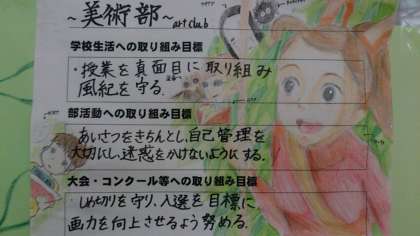 ～美術部～ art club
学校生活への取り組み目標
・授業を真面目に取り組み
風紀を守る。
部活動への取り組み目標
・あいさつをきちんとし、自己管理を
大切にし、迷惑をかけないようにする。
大会・コンクール等への取り組み目標
・しめ切りを守り、入選を目標に
画力を向上させるよう努める。